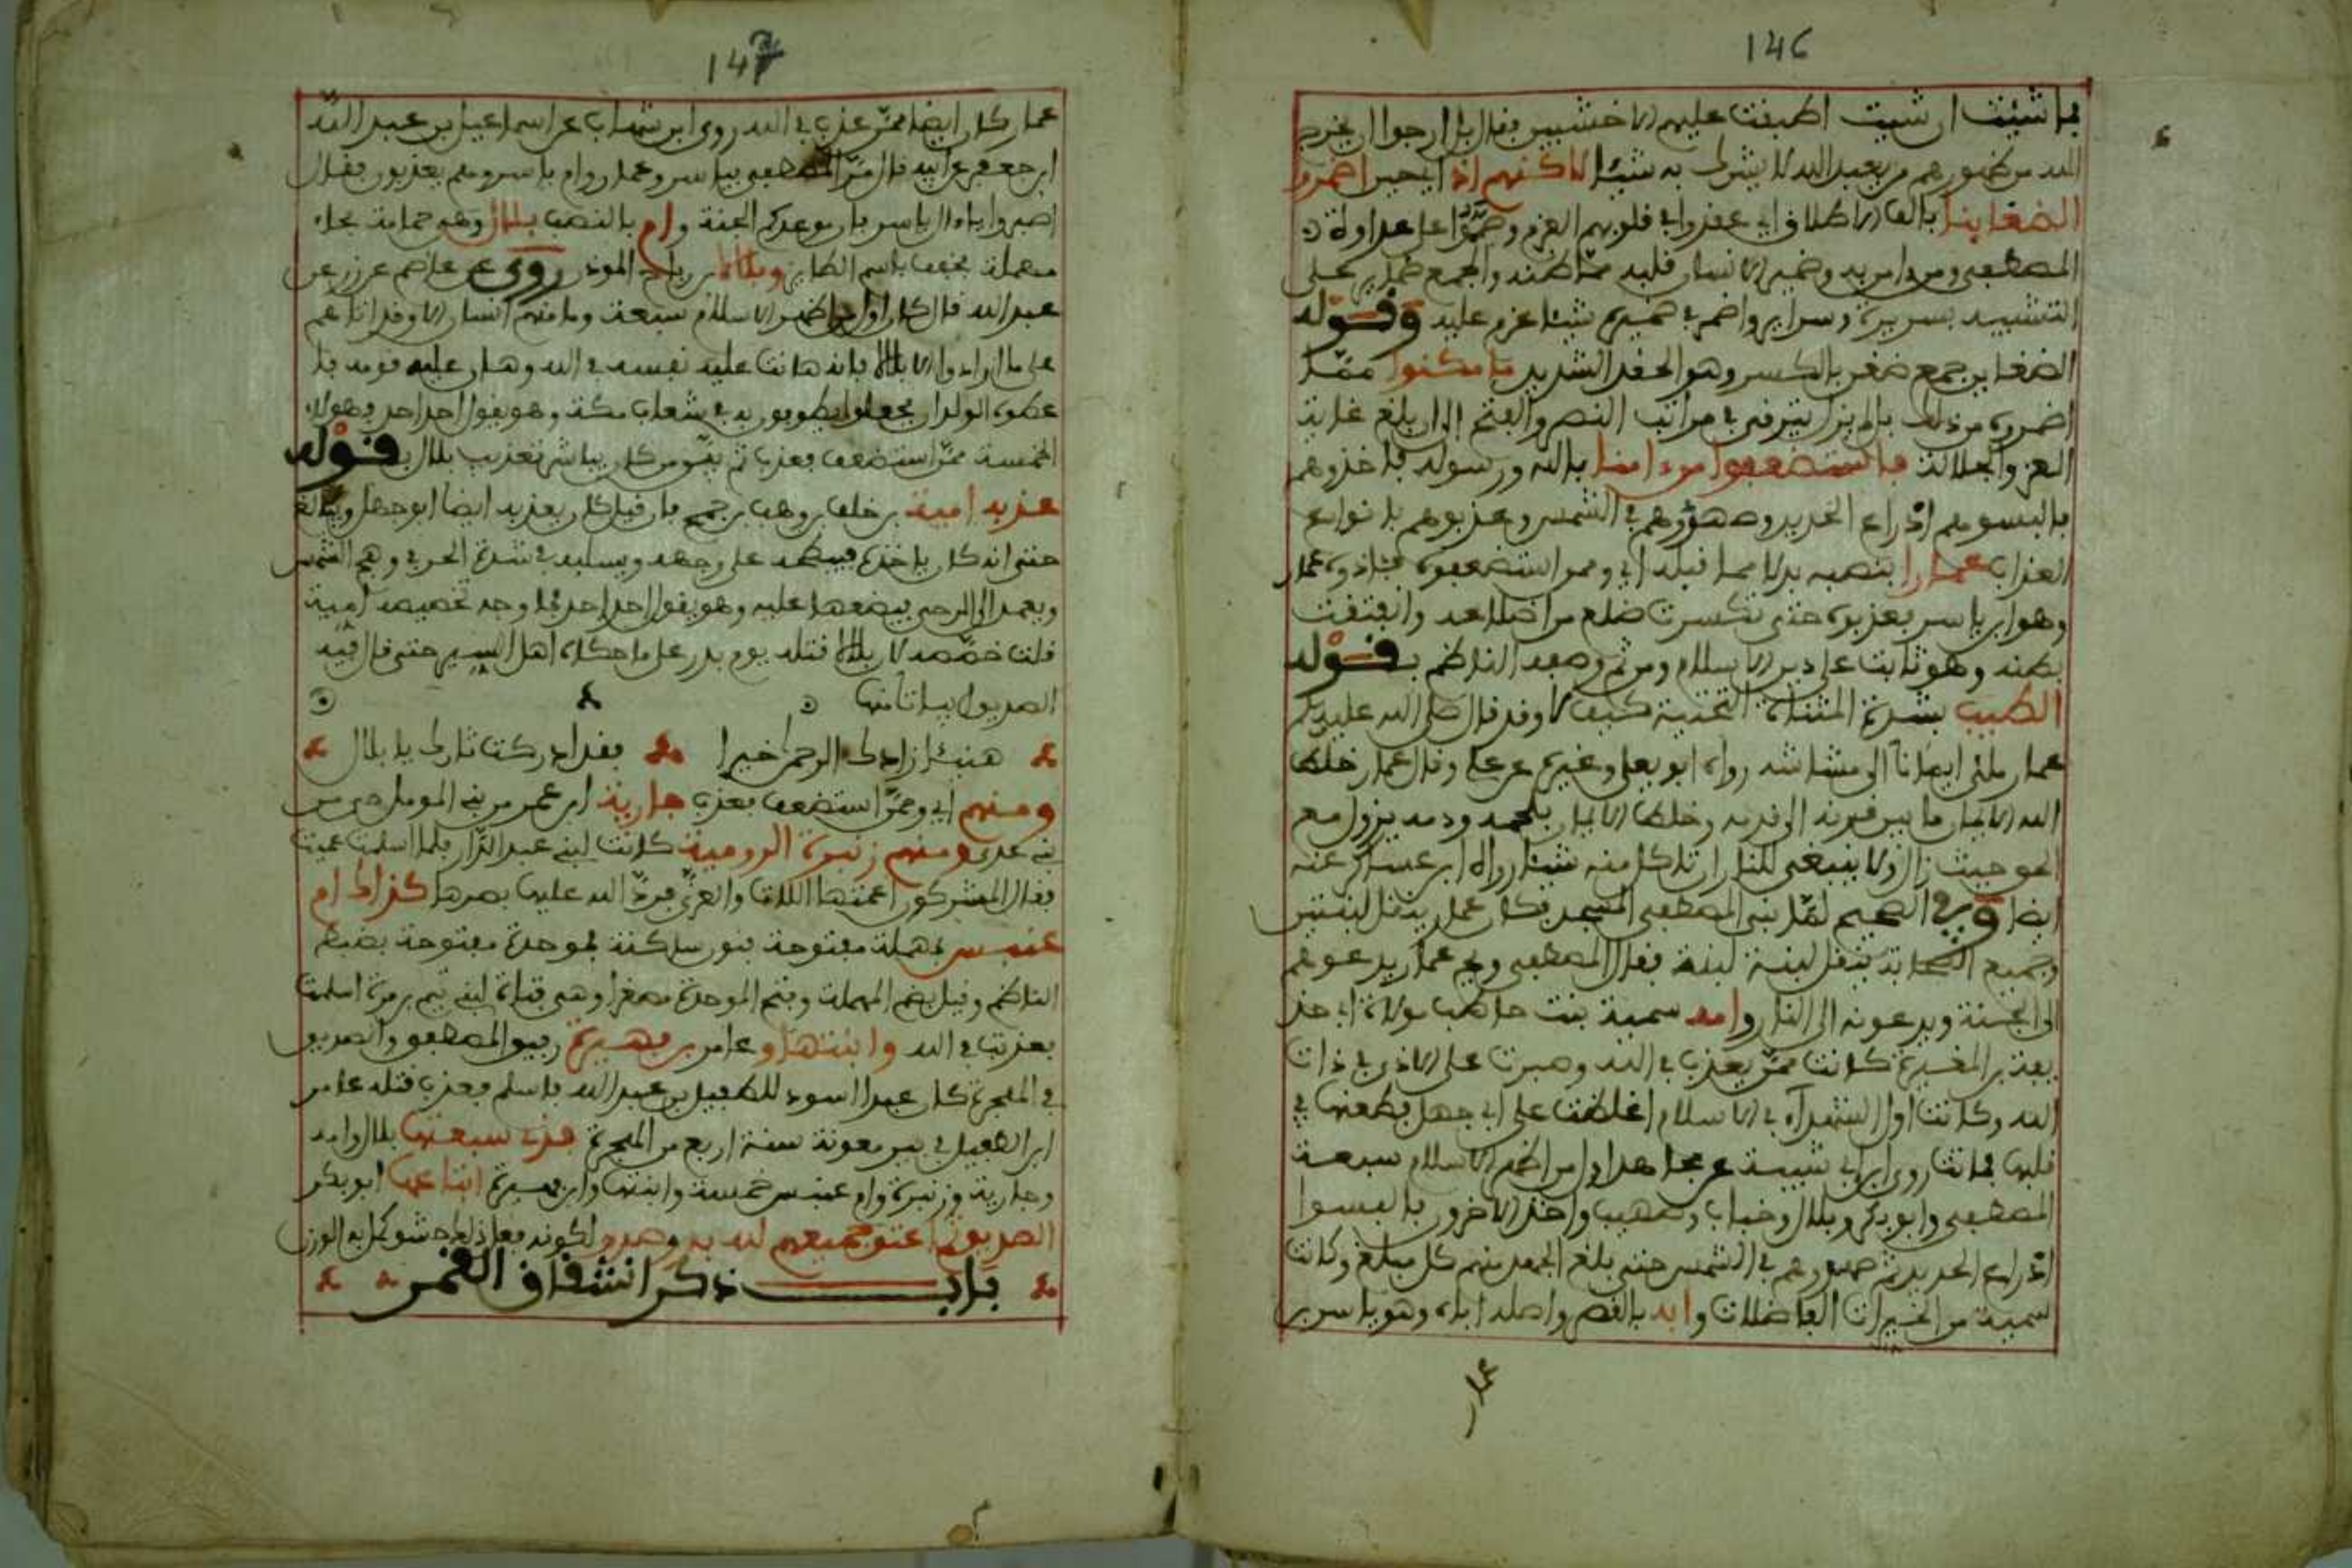 146
بما شئت ان شئت اطبقت عليهم الاخشبين فقال بل ارجوا ان يخرج
الله من ظهورهم من يعبد الله لا يشرك به شيئا لاكنهم اذ اي حين اضمروا
الضغاينا بالف الاطلاق اي عقدوا في قلوبهم العزم وصمموا على عداوة
المصطفى ومن دامن به وضمير الانسان قلبه
التشبيه بسريرة وسراير واضمر في ضميره شيئا عزم عليه وقوله
الضغاين جمع ضغن بالكسر وهو الحقد الشديد ما مكنوا مما
اضمروه من ذلك بل لم يزل يترقى في مراتب النصر والفتح الى ان بلغ غاية
العز والجلالة فاستضعفوا من دامنا بالله ورسوله فاخذوهم
فالبسوهم اذراع الحديد وصهروهم في الشمس وعذبوهم بانواع
العذاب عمارا بنصبه بدلا مما قبله اي وممن استضعفوه فئاذوه عمار
وهو ابن ياسر بعذبوه حتى تكسرت ضلع من اضلاعه وانفتقت
بطنه وهو ثابت على دين الاسلام ومن ثم وصفه الناظم بقوله
الطيب بشدة المثناة التحتية كيف لا وقد قال صلى الله عليه وسلم
عمار ملئ ايمانا الى مشاشه رواه ابو يعلى وغيره عن علي وقال عمار خلط
الله الايمان ما بين قرنه الى قدمه وخلط الايمان بلحمه ودمه يزول مع
الحق حيث زال ولا ينبغي للنار ان تاكل منه شيئا رواه ابن عساكر عنه
ايضا وفي الصحيح لما بنى المصطفى المسجد فكان عمار ينقل لبنتين
وجميع الصحابة ينقل لبنة لبنة فقال المصطفى ويح عمار يدعوهم
الى الجنة ويدعونه الى النار وامه سمية بنت خاطب مولاة ابي حذ
يفة بن المغيرة كانت ممن يعذب في الله وصبرت على الاذى في ذات
الله وكانت اول الشهداء في الاسلام اغلظت على ابي جهل فطعنها في
قلبها فماتت روى ابن ابي شيبة عن مجاهد اول من اظهر الاسلام سبعة
المصطفى وابو بكر وبلال وخباب وصهيب واخذ الاخرون فالبسوا
اذراع الحديد ثم صهروهم في الشمس حتى بلغ الجهد منهم كل مبلغ وكانت
سمية من الخيرات الفاضلات وابه بالقصر واصله اباه وهو ياسر بن
عمار
147
عمار كان ايضا ممن عذب في الله روى ابن شهاب عن اسماعيل بن عبد الله
ابن جعفر عن ابيه قال مر المصطفى بياسر وعمار وام ياسر وهم يعذبون فقال
اصبروا ياءال ياسر فان موعدكم الجنة وام بالنصب بلال وهو حمامة بحاء
مهملة مخفف باسم الطاير وبلالا بن رباح الموذن روى عن عاصم عن زر عن
عبد الله قال كان اول من اظهر الاسلام سبعة وما منهم انسان الا وقد اتاهم
على ما ارادوا الا بلالا فانه هانت عليه نفسه في الله وهان على قومه فا
عطوه الولدان فجعلوا يطوفون به في شعاب مكة وهو يقول احد احد فهولاء
الخمسة ممن استضعف فعذب ثم بين من كان يباشر تعذيب بلال بقوله
عذبه امية بن خلف بن وهب بن جمح قيل كان يعذبه ايضا ابو جهل ويبالغ
حتى انه كان ياخذه فيبطحه على وجهه ويسلبه في شدة الحر في وهج الشمس
ويعمد الى الرحى فيضعها عليه وهو يقول احد احد فما وجه تخصيصه امية
قلت خصصه لان بلالا قتله يوم بدر على ما حكاه اهل السير حتى قال فيه
الصديق ابياتا منها
هنيئا زادك الرحمن خيرا فقد ادركت ثارك يا بلال
ومنهم اي وممن استضعف بعذب جارية ابن عمر من بني المومل حي من
بني عدي ومنهم زنيرة الرومية كانت لبني عبد الدار فلما اسلمت عميت
فقال المشركون اعمتها اللات والعزى فرد الله عليها بصرها كذاك ام
عنبس بمهملة مفتوحة فنون ساكنة فموحدة مفتوحة بضبط
الناظم وقيل بضم المهملة وفتح الموحدة مصغرا وهي فتاة لبني تيم بن مرة اسلمت
بعذبت في الله وابنتها وعامر بن فهيرة رفيق المصطفى والصديق
في الهجرة كان عبدا اسود للطفيل بن عبد الله فاسلم فعذب قتله عامر
ابن الطفيل في بير معونة سنة اربع من الهجرة فذي سبعتها بلال وامه
وجارية وزنيرة وام عنبس خمسة وابنتها وابن فهيرة ابتاعها ابو بكر
الصديق ثم اعتق جميعهم لله بر وصدق لكونه
باب ذكر انشقاق القمر